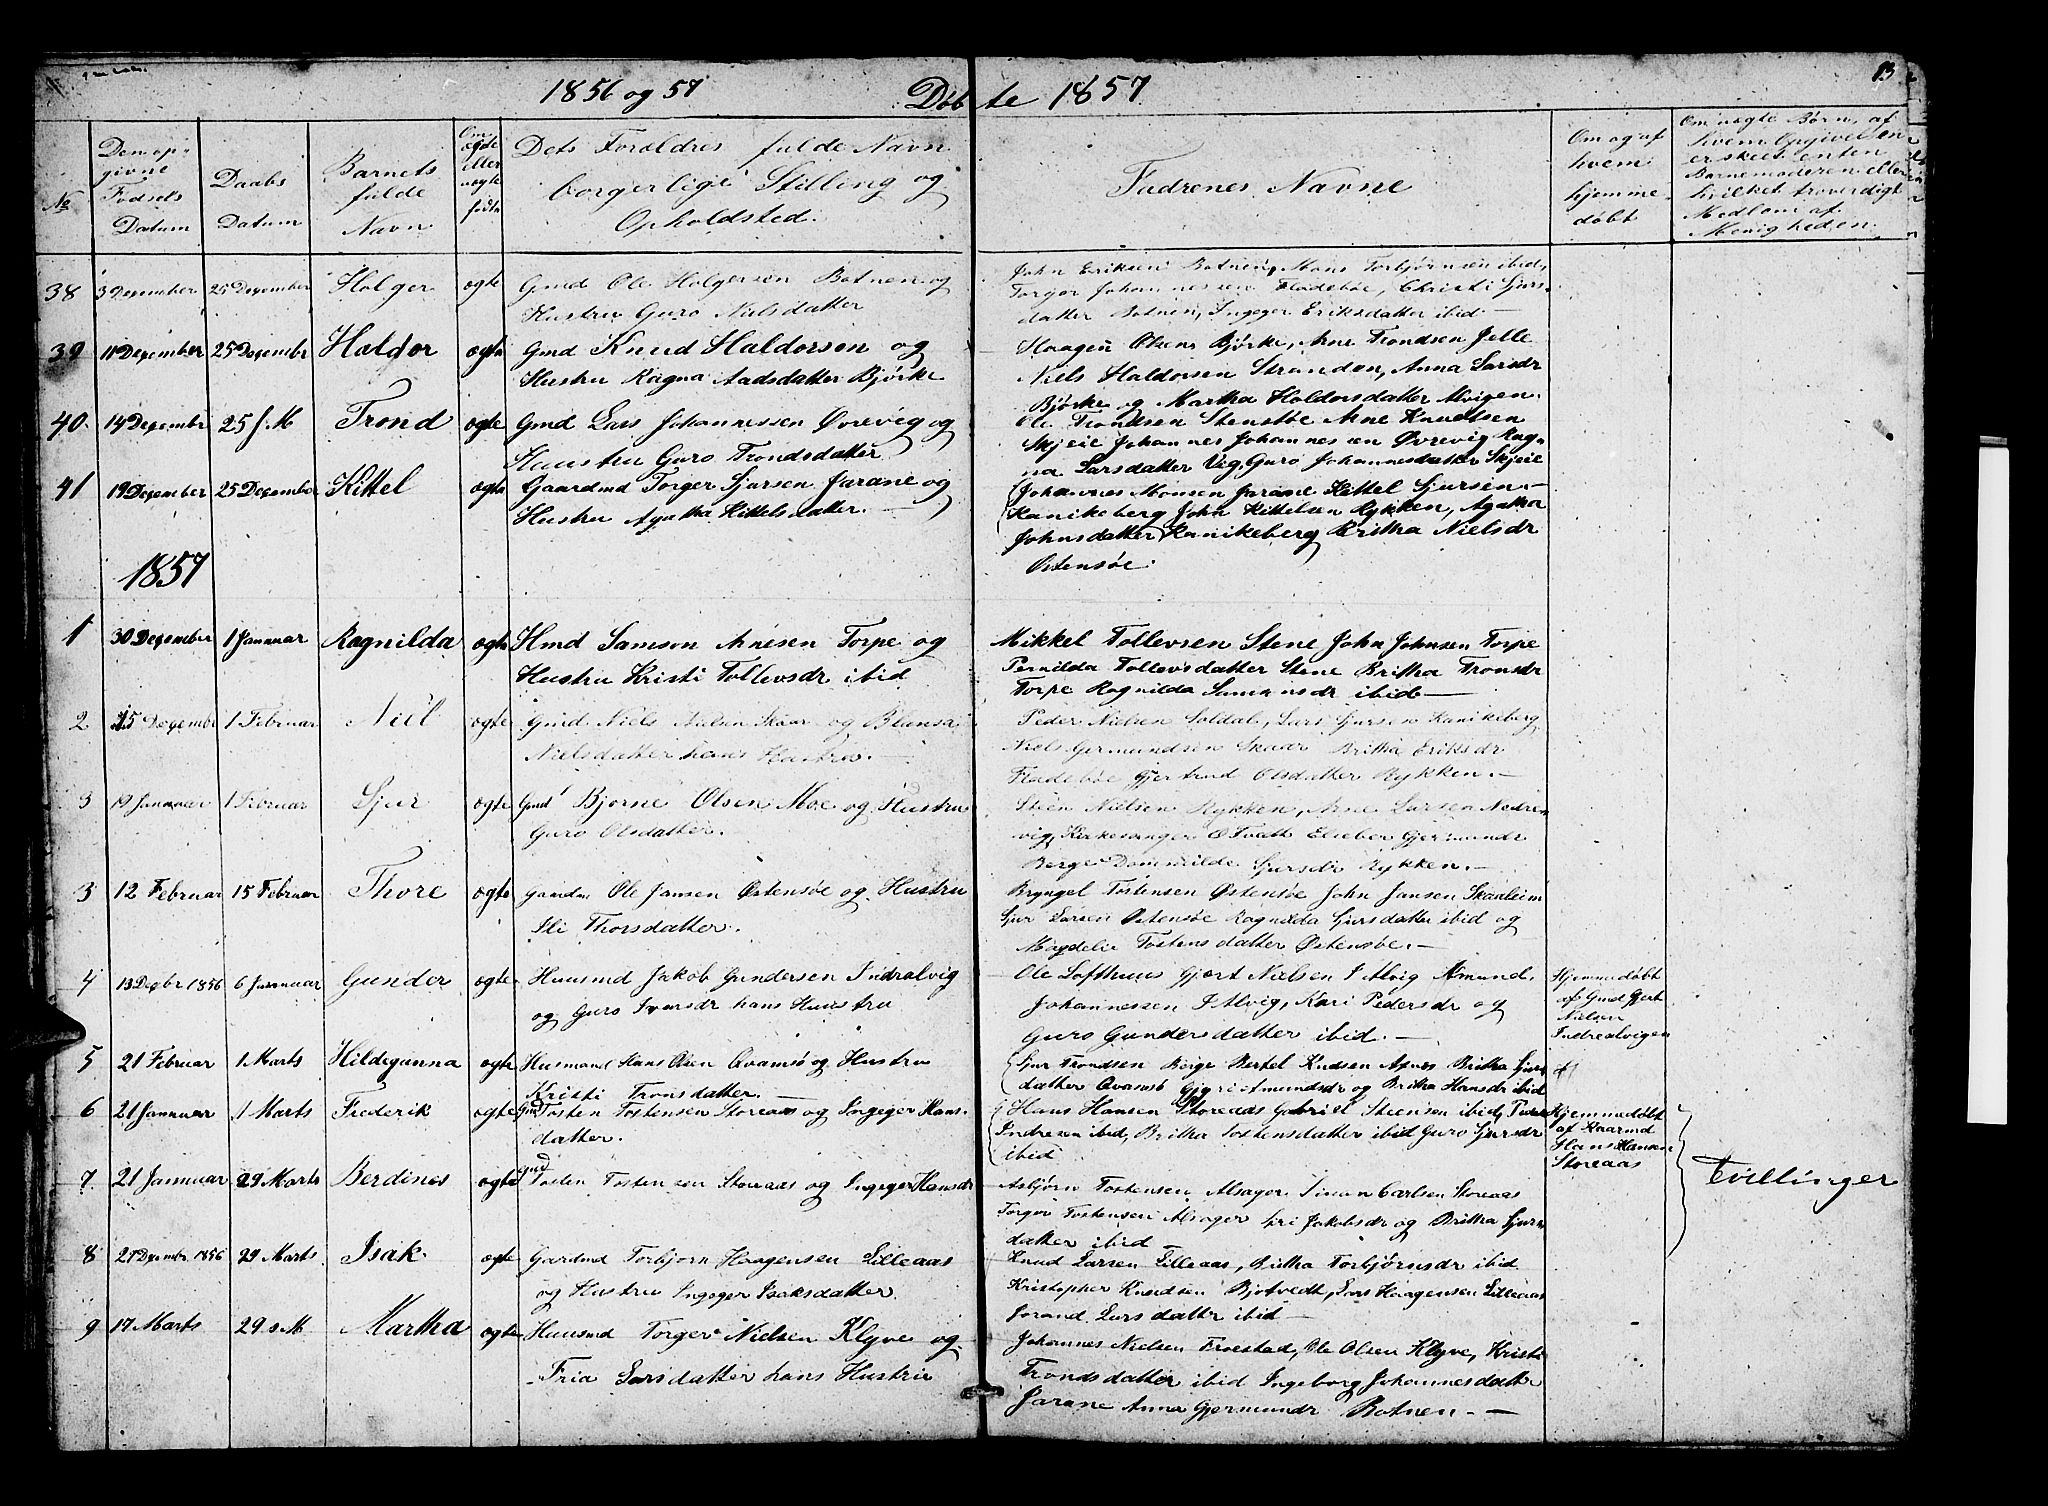 1856 og 57 Døbte 1857 13
No
Den op-
givne
Fødsels
Datum
Daabs
Datum
Barnets
fulde
Navn
Om
ægte
eller
uægte
født
Dets Foreldres fulde Navn
borgerlige Stilling og
Opholdsted.
Fadrenes Navne
Om og af
hvem
hjemme-
døbt
Om uægte Børn, af
hvem Opgivelsen
er skeet enten
Barnemoderen eller
hvilket troverdigt
Medlem af
Menigheden.
38 3 Dezember 25 Dezember Holger ægte Gmd Ole Holgersen Botnen og
Hustru Guro Nielsdatter
John Eriksen Botnen, Mons Torbjørnsen ibid,
Torger Johannessen Fladebøe, Christi Sjurs-
datter Botnen, Ingeger Eriksdatter ibid
39 11 Dezember 25 Dezembr Haldor ægte Gmd Knud Haldorsen og
Hustru Ragna Aadsdatter Bjørke
Haagen Olsen Bjørke, Arne Trondsen Jelle
Niels Haldorsen Stranden, Anna Larsdr
Bjørke og Martha Haldorsdatter Alvigen.
40. 14 Dezembr 25 s. M Trond ægte Gmd Lars Johannessen Øvrevig og
Haustru Guro Trondsdatter
Ole Trondsen Stensøe Arne Knudsen
Skjeie Johannes Johannessen Øvrevig Rag-
na Larsdatter Vig, Guro Johannesdatter Skjeie
41 19 Dezember 25 Dezember Kittel ægte Gaardmd Torger Sjursen Jarane og
Hustru Agatha Kittelsdatter.
Johannes Monsen Jarane Kittel Sjursen
Kanikeberg John Kittelsen Rykken, Agatha
Johnsdatter Kanikeberg Britha Nielsdr
Ostensøe.
1857
1 30 Dezember 1 Januar Ragnilda ægte Hmd Samson Arnesen Torpe og
Hustru Kristi Tollevsdr ibid
Mikkel Tollevsen Stene John Johnsen Torpe
Pernilda Tollevsdatter Stene Britha Tronsdr
Torpe Ragnilda Samsonsdr ibid
2 25 Dezembr 1 Februar Niel ægte Gmd Niels Nielsen Skaar og Blansa
Nielsdatter hans Hustru.
Peder Nielsen Soldal, Lars Sjursen Kanikeberg
Niels Germundsen Skaar Britha Eriksdr
Fladebøe Gjertrud Olsdatter Rykken.
3 19 Januar 1 Februar Sjur ægte Gmd Bjorne Olsen Moe og Hustru
Guro Olsdatter.
Steen Nielsen Rykken, Arne Larsen Nedre
vig, Kirkesanger O Tvedt Elseber Gjermundr
Berge Dommilde Sjursdr Rykken.
3 12 Februar 15 Februar Thore ægte gaardm Ole Jansen Østensøe og Hustru
Ili Thorsdatter.
Bryngel Tostensen Østensøe John Jansen Skanleim
Sjur Larsen Østensøe Ragnilda Sjursdatter ibid og
Magdelie Tostensdatter Østensøe.
4 13 Dezbr 1856 6 Januar Gunder ægte Huusmd Jakob Gundersen Indralvig
og Guro Iversdr hans Huustru
Ole Lofthuus Gjert Nielsen I Alvig Amund
Johannessen I Alvig, Kari Pedersdr og
Guro Gundersdatter ibid.
Hjemmedøbt
af Gmd Gjert
Nielsen
Indrealvigen
5 21 Februar 1 Marts Hildegunna ægte Husmand Hans Olsen Qvamsø og Hustru
Kristi Tronsdatter.
Sjur Trondsen Berge Bertel Knudsen Axnes Britha Sjurs
datter Qvamsø Gjyri Amundsdr og Britha Hansdr ibid
6 21 Januar 1 Marts Frederik ægte Gmd Tosten Tostensen Storeaas og Ingeger Hans-
datter.
Hans Hansen Storeaas Gabriel Steensen ibid, Peder
Indresen ibid, Britha Tostensdatter ibid Guro Sjursdr
ibid
Hjemmedøbt
af Kaarmd
Hans Hansen
Storeaas
7. 21 Januar 29 Marts Berdines ægte Gmd Tosten Tostensen Storeaas og Ingeger Hansdr
Asbjörn Tostensen Alsager Simon Carlsen Storeaas
Torger Tostensen Alsager Siri Jakobsdr og Britha Sjurs
datter ibid
Tvillinger
8 27 Dezembr 1856 29 Marts Isak ægte Gardmd Torbjorn Haagensen Lilleaas
og Hustru Ingeger Isaksdatter.
Knud Larsen Lilleaas, Britha Torbjørnsdr ibid
Kristopher Knudsen Bjotvedt, Lars Haagensen Lilleaas
Jorand Larsdatter ibid
9 17 Marts 29 s M. Martha ægte Huusmd Torger Nielsen Klyve og
Fria Larsdatter hans Hustru
Johannes Nielsen Froestad, Ole Olsen Klyve, Kristi
Trondsdatter ibid Ingeborg Johannesdatter
Jarane Anna Gjermundr Botnen.